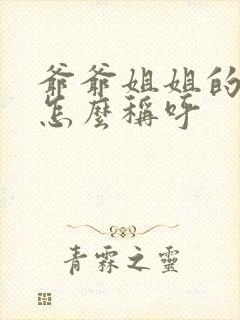 爺爺姐姐的
怎麼稱呼
青霖之靈